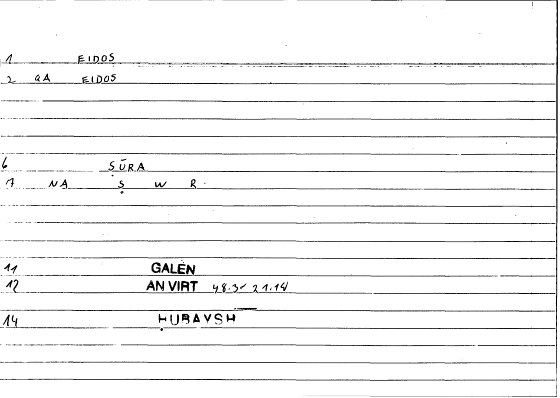 1 EIDOS
2 QA EIDOS
6 ṢŪRA
7 NA Ṣ W R
11 GALÈN
12 AN VIRT 48.3/21.14
14 ḤUBAYSH